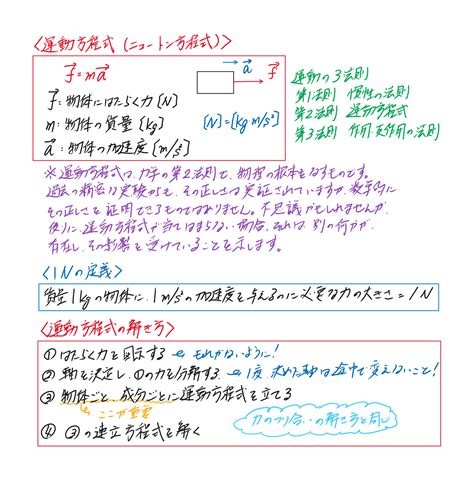 〈運動方程式(ニュートン方程式)〉
f⃗=ma⃗
a⃗
f⃗
f⃗:物体にはたらく力〔N〕
m:物体の質量〔kg〕
a⃗:物体の加速度〔m/s²〕
〔N〕=〔kg m/s²〕
運動の3法則
第1法則 慣性の法則
第2法則 運動方程式
第3法則 作用・反作用の法則
※運動方程式は、力学の第2法則で、物理の根本をなすものです。
過去の精密な実験からも、その正しさは実証されていますが、数学的に
その正しさを証明できるものではありません。不思議かもしれませんが、
仮に、運動方程式が当てはまらない場合、それは、別の何かが
存在し、その影響を受けていることを示します。
〈1Nの定義〉
質量1kgの物体に、1m/s²の加速度を与えるのに必要な力の大きさ=1N
〈運動方程式の解き方〉
① はたらく力を図示する ← もれがないように!
② 軸を決定し、①の力を分解する ← 1度決めた軸は途中で変えないこと!
③ 物体ごと、成分ごとに運動方程式を立てる
ここが重要
④ ③の連立方程式を解く
力のつり合いの解き方と同じ